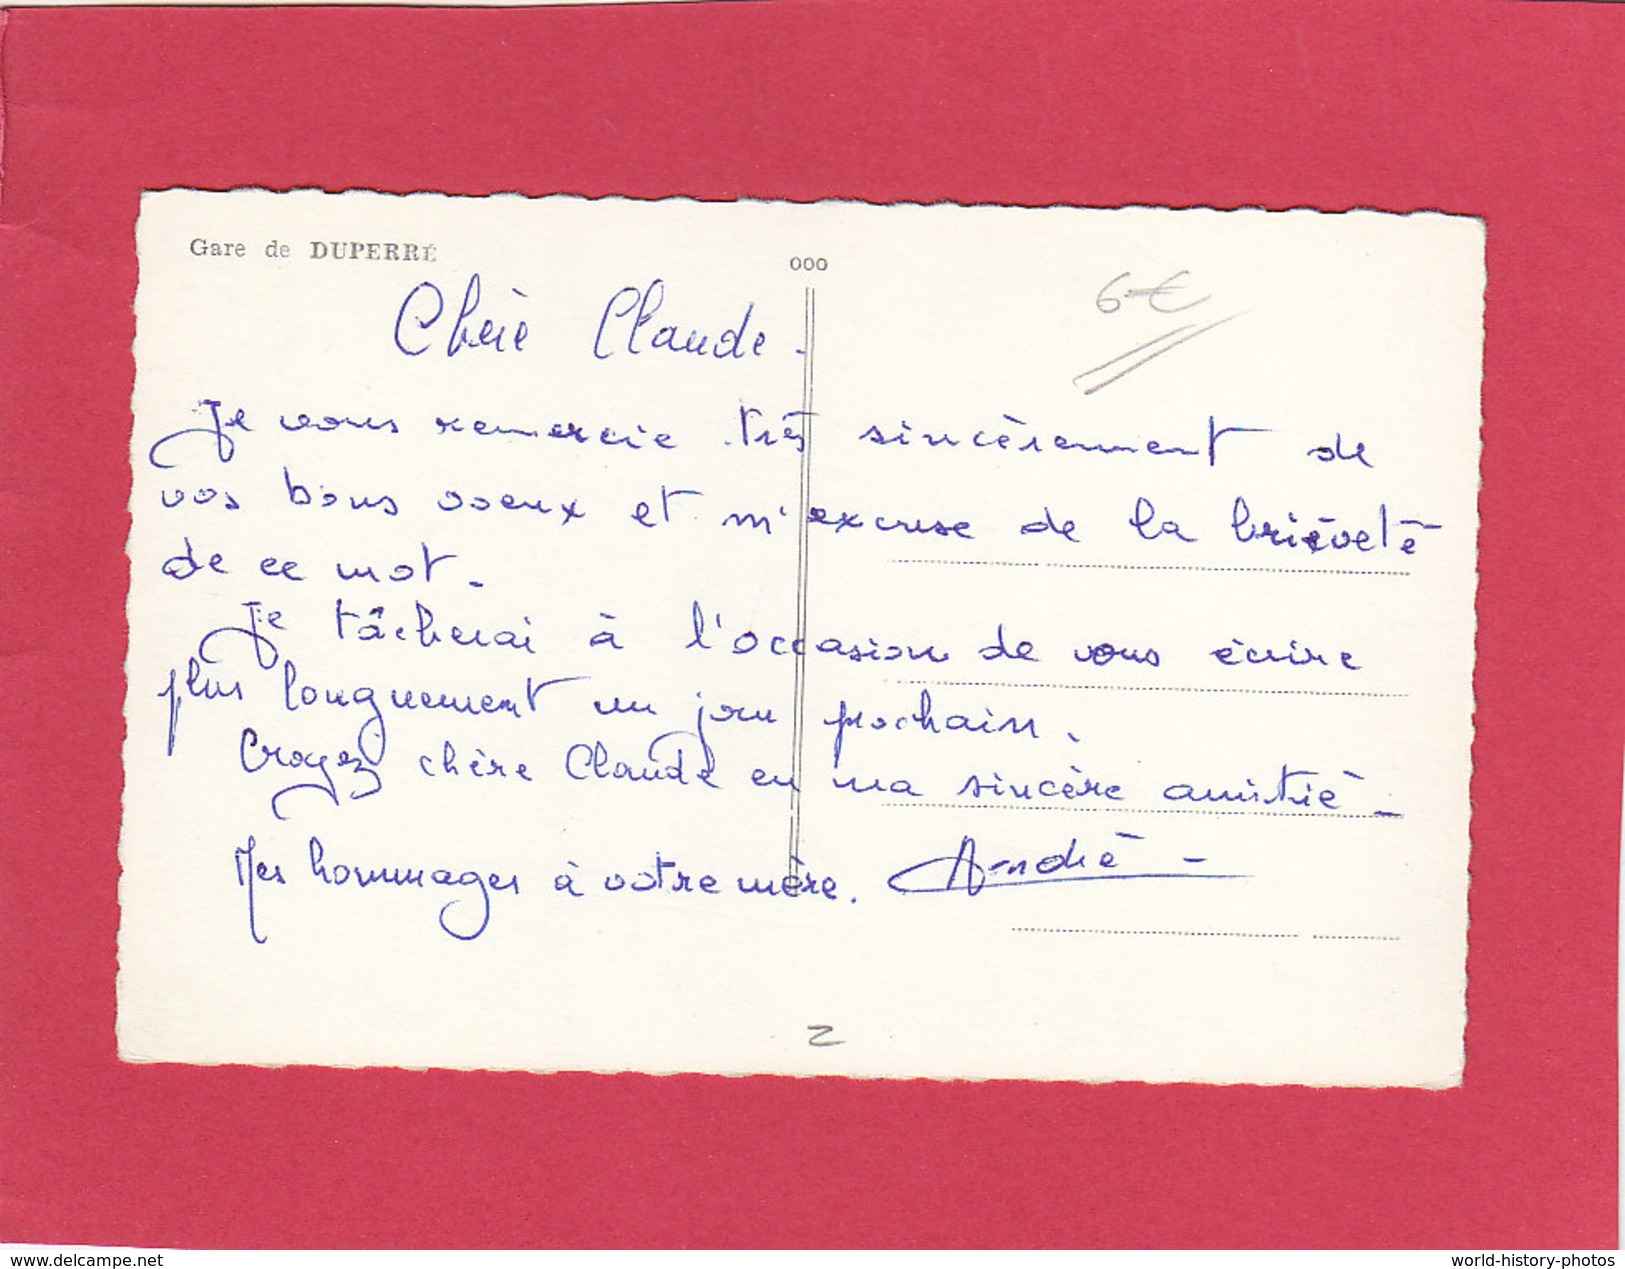 Gare de DUPERRÉ
ooo
6€
Chère Claude.
Je vous remercie très sincèrement de
vos bons voeux et m'excuse de la brièveté
de ce mot.
Je tâcherai à l'occasion de vous écrire
plus longuement un jour prochain.
Croyez chère Claude en ma sincère amitié.
Mes hommages à votre mère. André
2
delcampe.net
world-history-photos